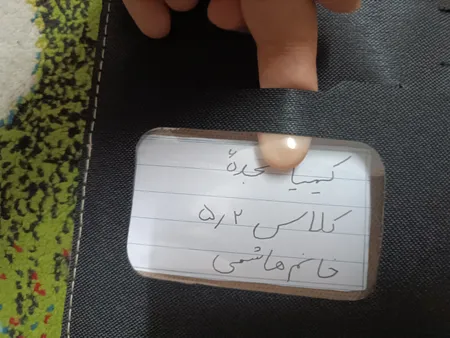 کیمیا
کلاس ۵٫۲
خانم هاشمی